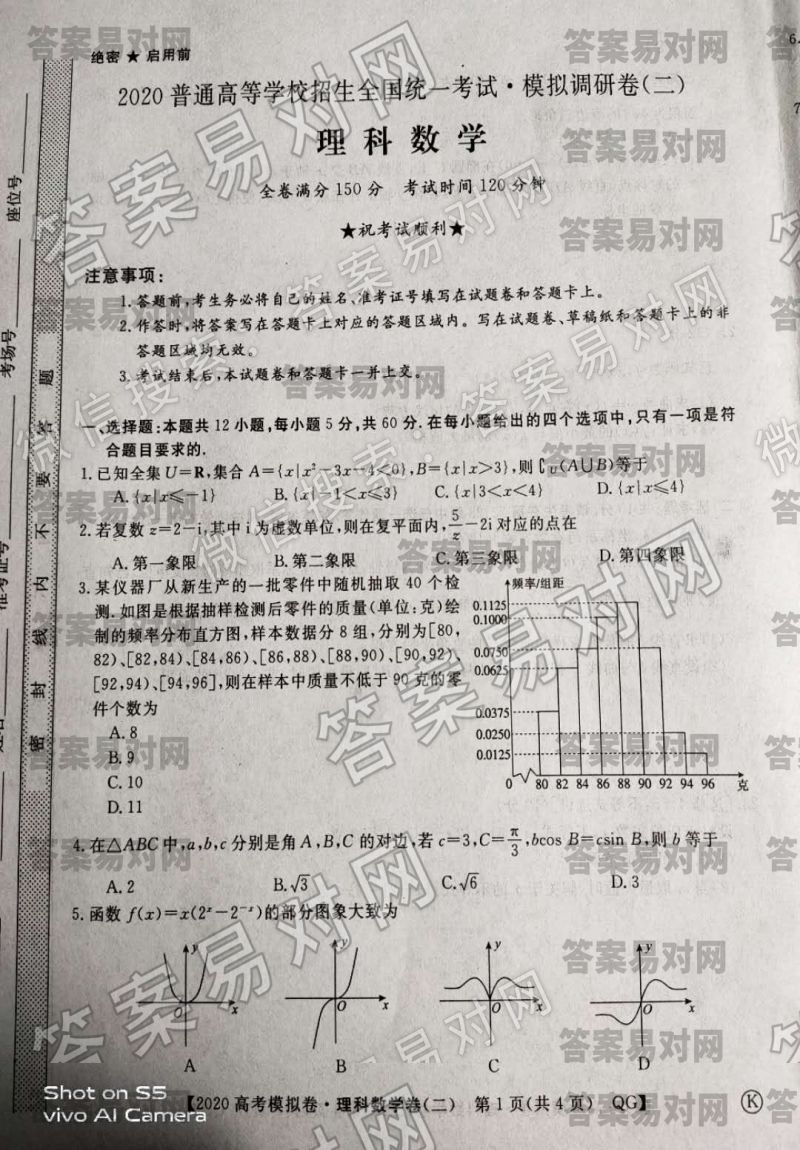 绝密 ★ 启用前
2020普通高等学校招生全国统一考试·模拟调研卷(二)
理科数学
全卷满分150分 考试时间120分钟
★祝考试顺利★
注意事项:
1.答题前,考生务必将自己的姓名、准考证号填写在试题卷和答题卡上。
2.作答时,将答案写在答题卡上对应的答题区域内。写在试题卷、草稿纸和答题卡上的非
答题区域均无效。
3.考试结束后,本试题卷和答题卡一并上交。
一、选择题:本题共12小题,每小题5分,共60分.在每小题给出的四个选项中,只有一项是符
合题目要求的.
1.已知全集U=R,集合A={x|x²-3x-4<0},B={x|x>3},则∁U(A∪B)等于
A.{x|x≤-1} B.{x|-1<x≤3} C.{x|3<x<4} D.{x|x≤4}
2.若复数z=2-i,其中i为虚数单位,则在复平面内,5/z-2i对应的点在
A.第一象限 B.第二象限 C.第三象限 D.第四象限
3.某仪器厂从新生产的一批零件中随机抽取40个检
测.如图是根据抽样检测后零件的质量(单位:克)绘
制的频率分布直方图,样本数据分8组,分别为[80,
82)、[82,84)、[84,86)、[86,88)、[88,90)、[90,92)、
[92,94)、[94,96],则在样本中质量不低于90克的零
件个数为
A.8
B.9
C.10
D.11
频率/组距
0.1125
0.1000
0.0750
0.0625
0.0375
0.0250
0.0125
0 80 82 84 86 88 90 92 94 96 克
4.在△ABC中,a,b,c分别是角A,B,C的对边,若c=3,C=π/3,bcos B=csin B,则b等于
A.2 B.√3 C.√6 D.3
5.函数f(x)=x(2ˣ-2⁻ˣ)的部分图象大致为
y y y y
O x O x O x O x
A B C D
【2020高考模拟卷·理科数学卷(二) 第1页(共4页) QG】
K
座位号
考场号
准考证号
姓名
密封线内不要答题
6.
7
答案易对网
微信搜索:答案易对网
Shot on S5
vivo AI Camera